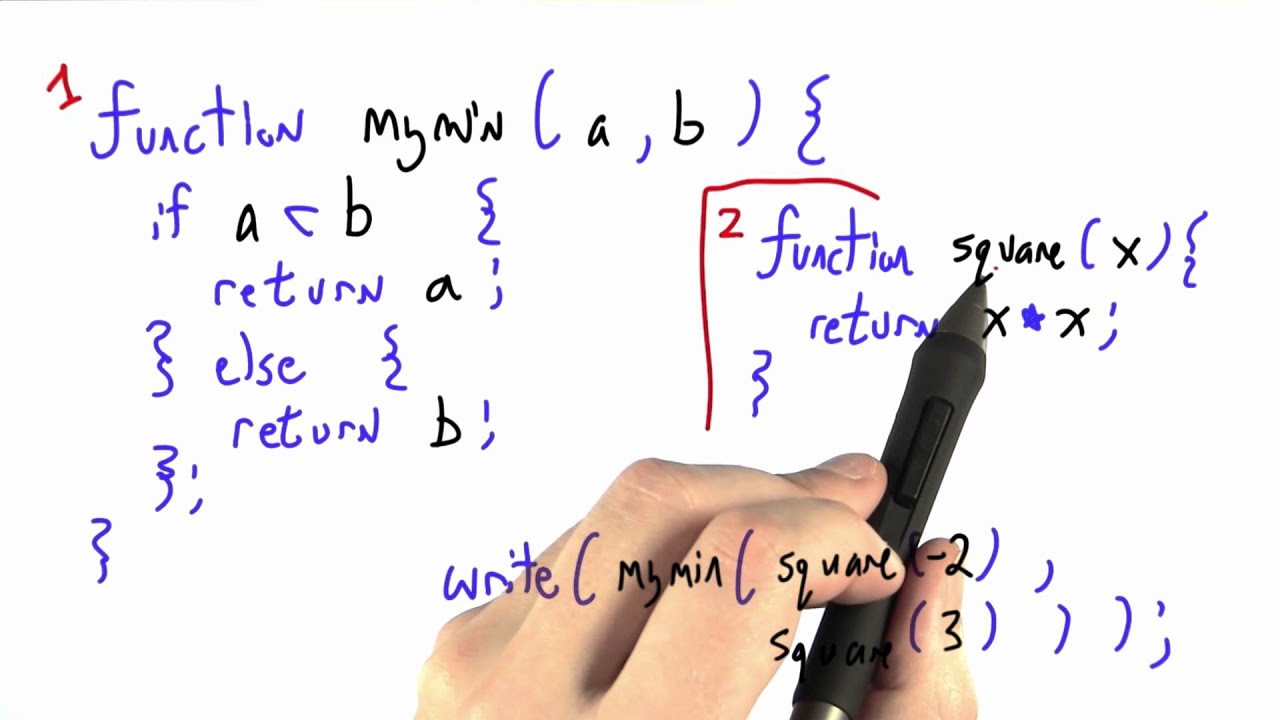 1
function mymin(a,b){
if a < b {
return a;
} else {
return b;
};
}
2
function square(x){
return x * x;
}
write(mymin(square(-2),
square(3)));